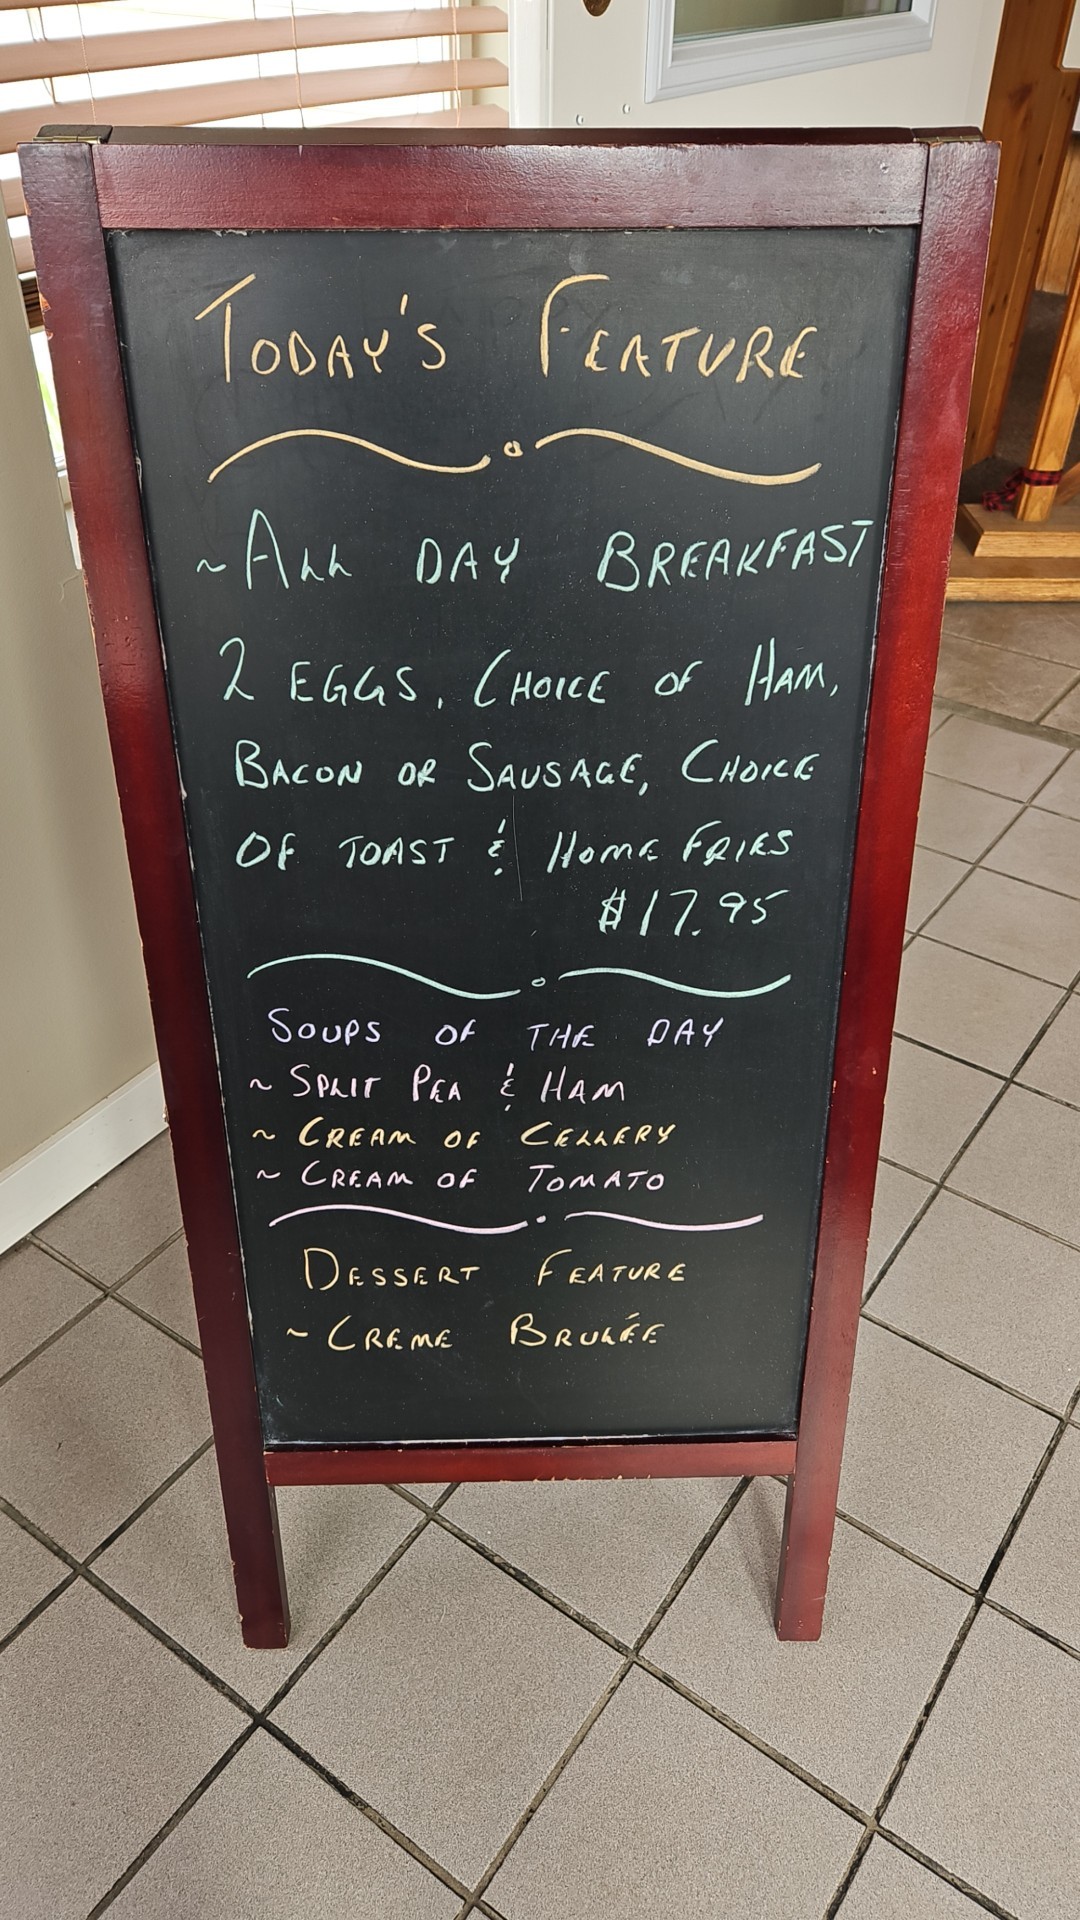 TODAY'S FEATURE
~ALL DAY BREAKFAST
2 EGGS, CHOICE OF HAM,
BACON OR SAUSAGE, CHOICE
OF TOAST & HOME FRIES
$17.95
SOUPS OF THE DAY
~ SPLIT PEA & HAM
~ CREAM OF CELLERY
~ CREAM OF TOMATO
DESSERT FEATURE
~ CREME BRULÉE